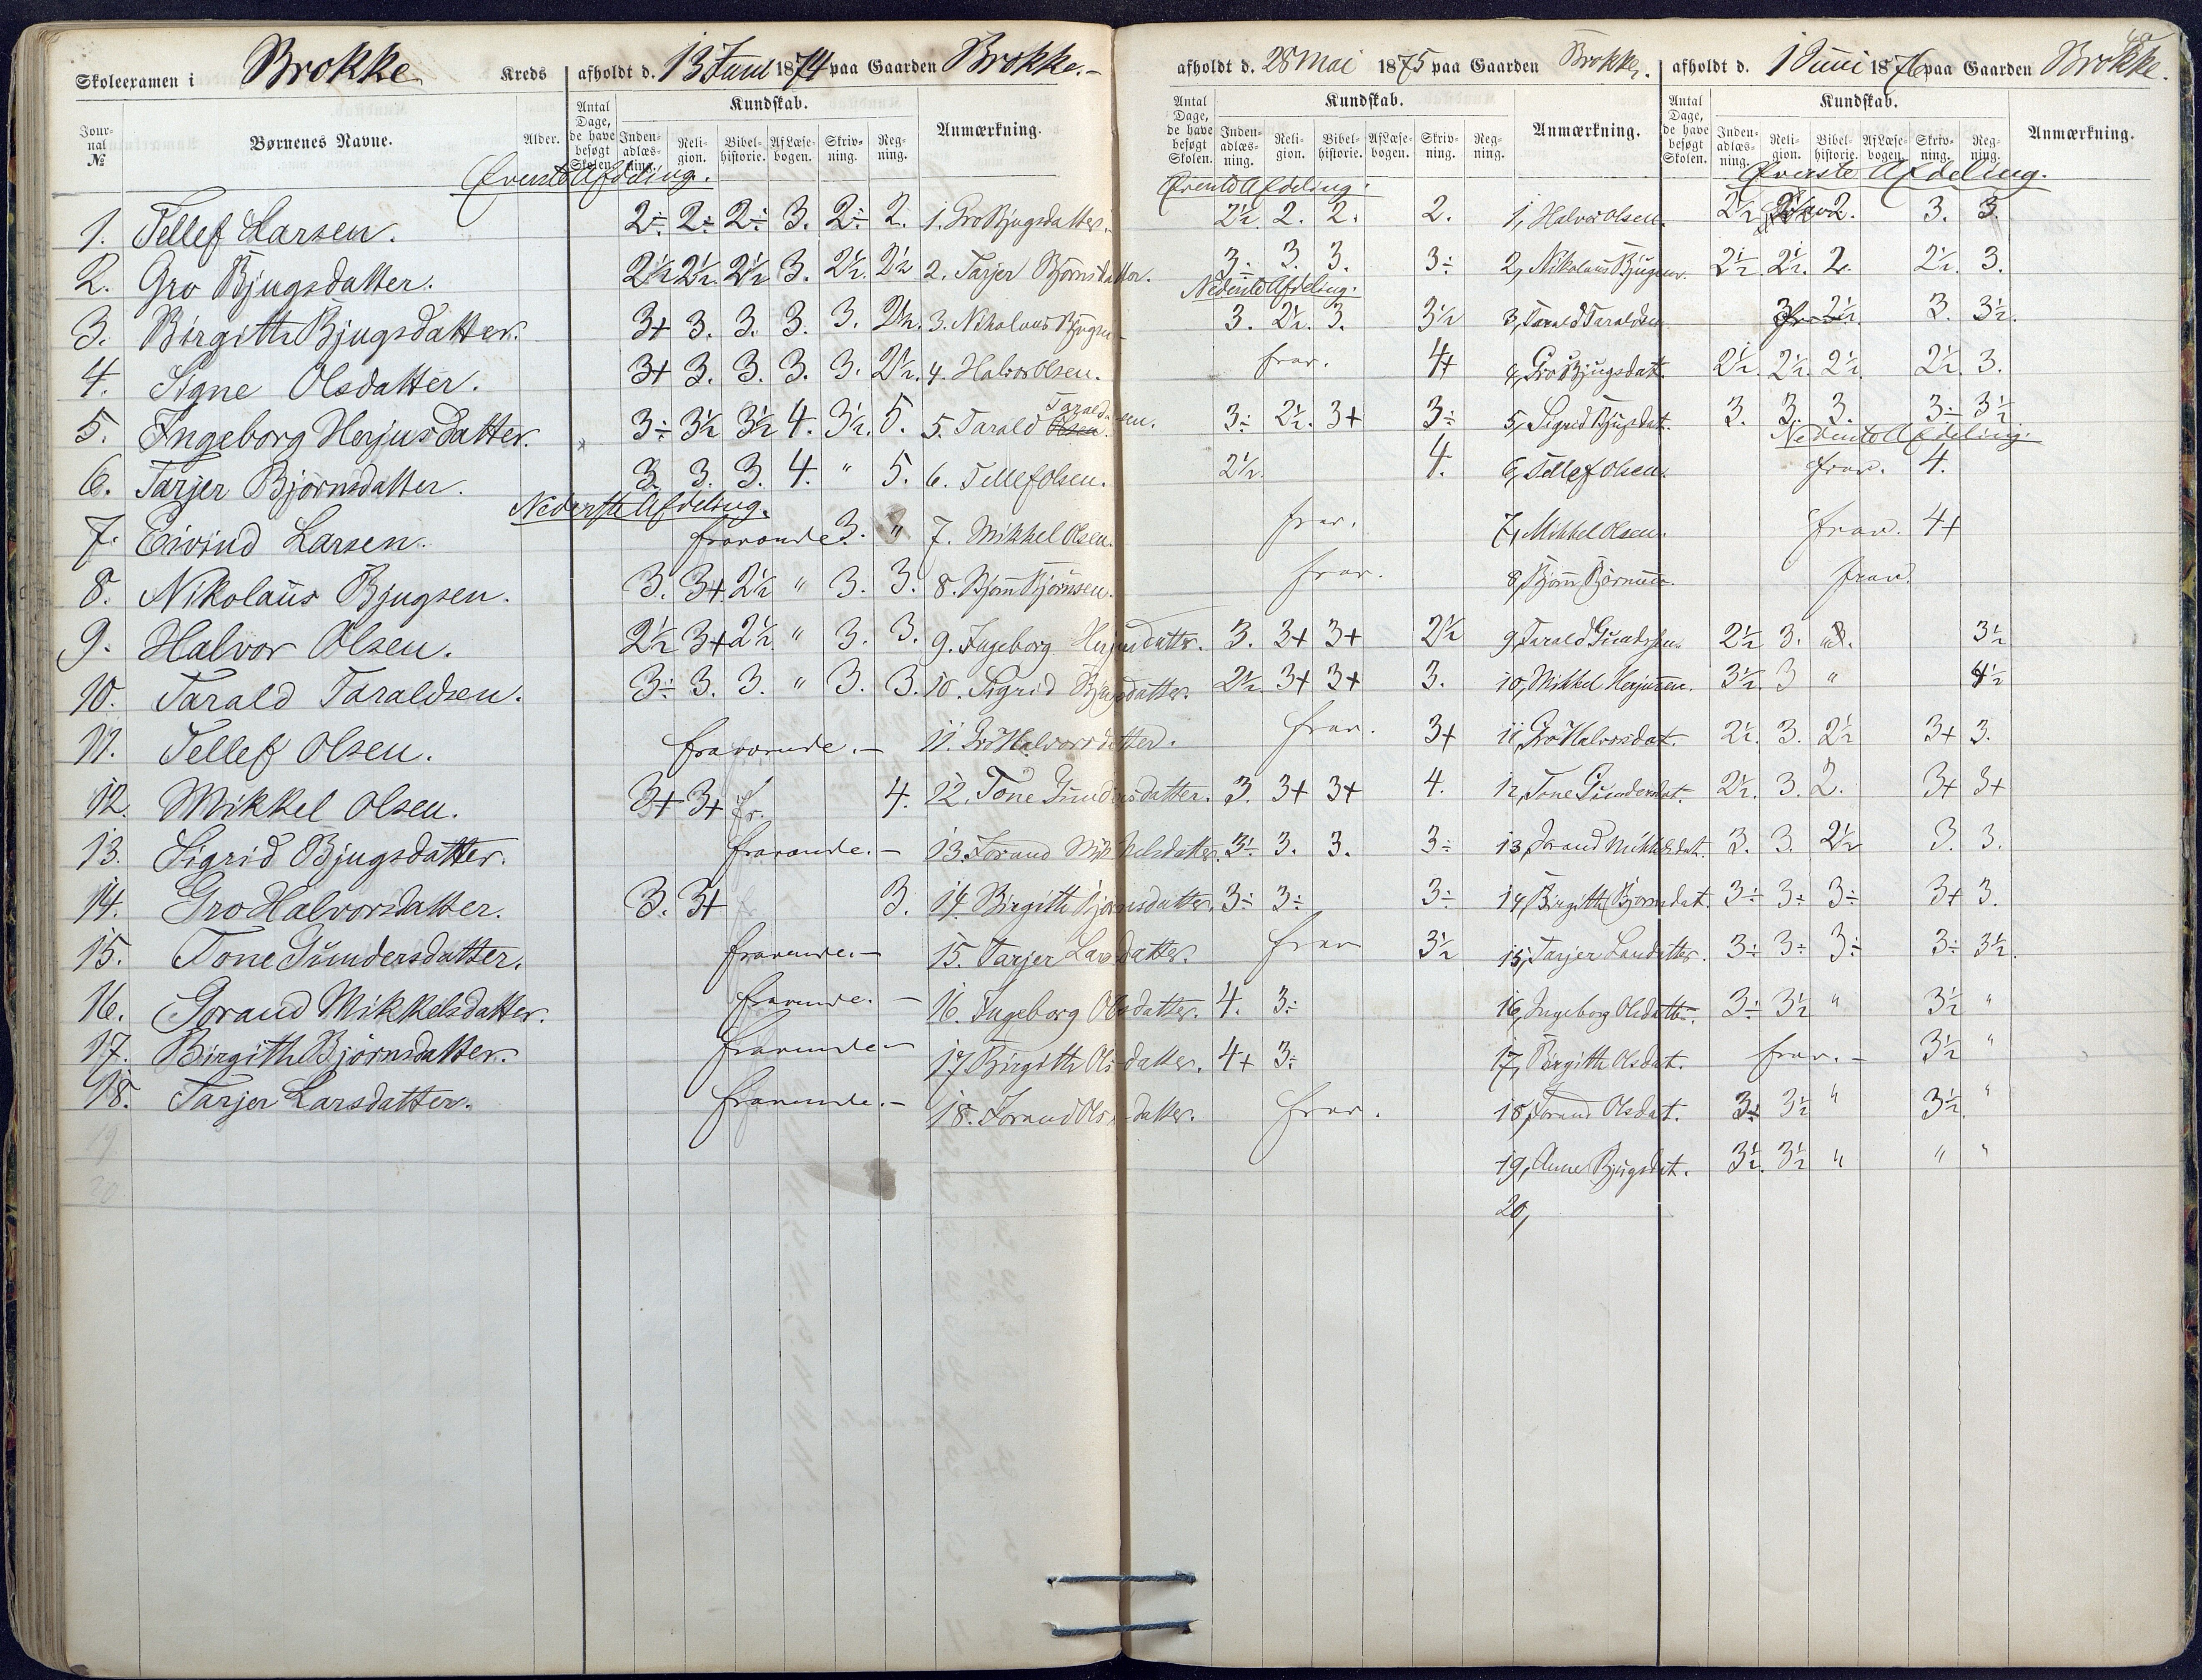 Skoleexamen i Brokke Kreds afholdt d. 13 Juni 1874 paa Gaarden Brokke.-
Jour-nal № Børnenes Navne. Alder. Antal Dage, de have besøgt Skolen. Kundskab. Inden-adlæs-ning. Reli-gion. Bibel-historie. AfLæse-bogen. Skriv-ning. Reg-ning. Anmærkning.
Øverste Afdeling.
1. Tellef Larsen. 2÷ 2÷ 2÷ 3. 2÷ 2. 1. Gro Bjugsdatter.
2. Gro Bjugsdatter. 2½ 2½ 2½ 3. 2½. 2½ 2. Tarjer Bjørnsdatter.
3. Birgitte Bjugsdatter. 3+ 3. 3. 3. 3. 2½. 3. Nikolaus Bjugsen
4. Signe Olsdatter. 3+ 3. 3. 3. 3. 2½. 4. Halvor Olsen.
5. Ingeborg Herjusdatter. 3÷ 3½ 3½ 4. 3½. 5. 5. Tarald Olsen Taraldsen.
6. Tarjer Bjørnsdatter. 3. 3. 3. 4. " 5. 6. Tellef Olsen.
Nederste Afdeling.
7. Eivind Larsen. fravarende 3. " 7. Mikkel Olsen.
8. Nikolaus Bjugsen. 3. 3+ 2½ " 3. 3. 8. Bjørn Bjørnsen.
9. Halvor Olsen. 2½ 3+ 2½ " 3. 3. 9. Ingeborg Herjusdatter.
10. Tarald Taraldsen. 3÷ 3. 3. " 3. 3. 10. Sigrid Bjugsdatter.
11. Tellef Olsen. fravarende.- 11. Gro Halvorsdatter.
12. Mikkel Olsen. 3+ 3+ fr. 4. 12. Tone Gundersdatter.
13. Sigrid Bjugsdatter. fravarende.- 13. Jorand Mikkelsdatter.
14. Gro Halvorsdatter. 3. 3+ 3. 14. Birgith Bjørnsdatter.
15. Tone Gundersdatter. fravarende.- 15. Tarjer Larsdatter.
16. Jorand Mikkelsdatter. fravarende.- 16. Ingeborg Olsdatter.
17. Birgith Bjørnsdatter. fravarende.- 17. Birgith Olsdatter.
18. Tarjer Larsdatter. fravarende.- 18. Jorand Olsdatter.
19
20
afholdt d. 28 Mai 1875 paa Gaarden Brokke.
Antal Dage, de have besøgt Skolen. Kundskab. Inden-adlæs-ning. Reli-gion. Bibel-historie. AfLæse-bogen. Skriv-ning. Reg-ning. Anmærkning.
Øverste Afdeling.
2½. 2. 2. 2. 1, Halvor Olsen.
3÷ 3. 3. 3÷ 2, Nikolaus Bjugsen.
Nederste Afdeling.
3. 2½. 3. 3½ 3, Tarald Taraldsen
frav. 4+ 4, Gro Bjugsdat.
3÷ 2½. 3+ 3÷ 5, Sigrid Bjugsdat.
2½. 4. 6, Tellef Olsen.
frav. 7, Mikkel Olsen.
frav. 8, Bjørn Bjørnsen.
3. 3+ 3+ 2½ 9, Tarald Gundersen
2½. 3+ 3+ 3. 10, Mikkel Herjusen.
frav. 3+ 11, Gro Halvorsdat.
3. 3+ 3+ 4. 12, Tone Gundersdat.
3½. 3. 3. 3÷ 13, Jorand Mikkelsdat.
3÷ 3÷ 3÷ 14, Birgith Bjørnsdat.
frav 3½ 15, Tarjer Larsdatter.
4. 3÷ 16, Ingeborg Olsdatter.
4+ 3÷ 17, Birgith Olsdat.
frav. 18, Jorand Olsdat.
19, Anne Bjugsdat.
20,
afholdt d. 1 Juni 1876 paa Gaarden Brokke.
Antal Dage, de have besøgt Skolen. Kundskab. Inden-adlæs-ning. Reli-gion. Bibel-historie. AfLæse-bogen. Skriv-ning. Reg-ning. Anmærkning.
Øverste Afdeling.
2½ 2. 3. 3.
2½. 2½. 2. 2½. 3.
2½. 3. 3½.
2½. 2½. 2½. 2½. 3.
3. 3. 3. 3÷ 3½
Nederste Afdeling.
frav. 4.
frav. 4+
frav.
2½ 3. 3½
3½. 3 " 4½
2½. 3. 2½ 3+ 3.
2½. 3. 2. 3+ 3+
3. 3. 2½ 3. 3.
3÷ 3÷ 3÷ 3+ 3.
3÷ 3÷ 3÷ 3÷ 3½.
3÷ 3½ " 3½ "
frav.- 3½ "
3÷ 3½ " 3½. "
3½. 3½ " " "